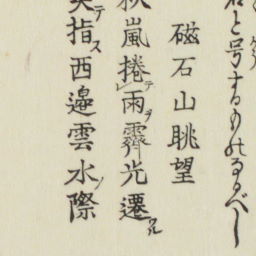 石と号するものなるべし
磁石山眺望
秋嵐捲テ雨ヲ霽光遷ル
笑テ指ス西邉雲水ノ際